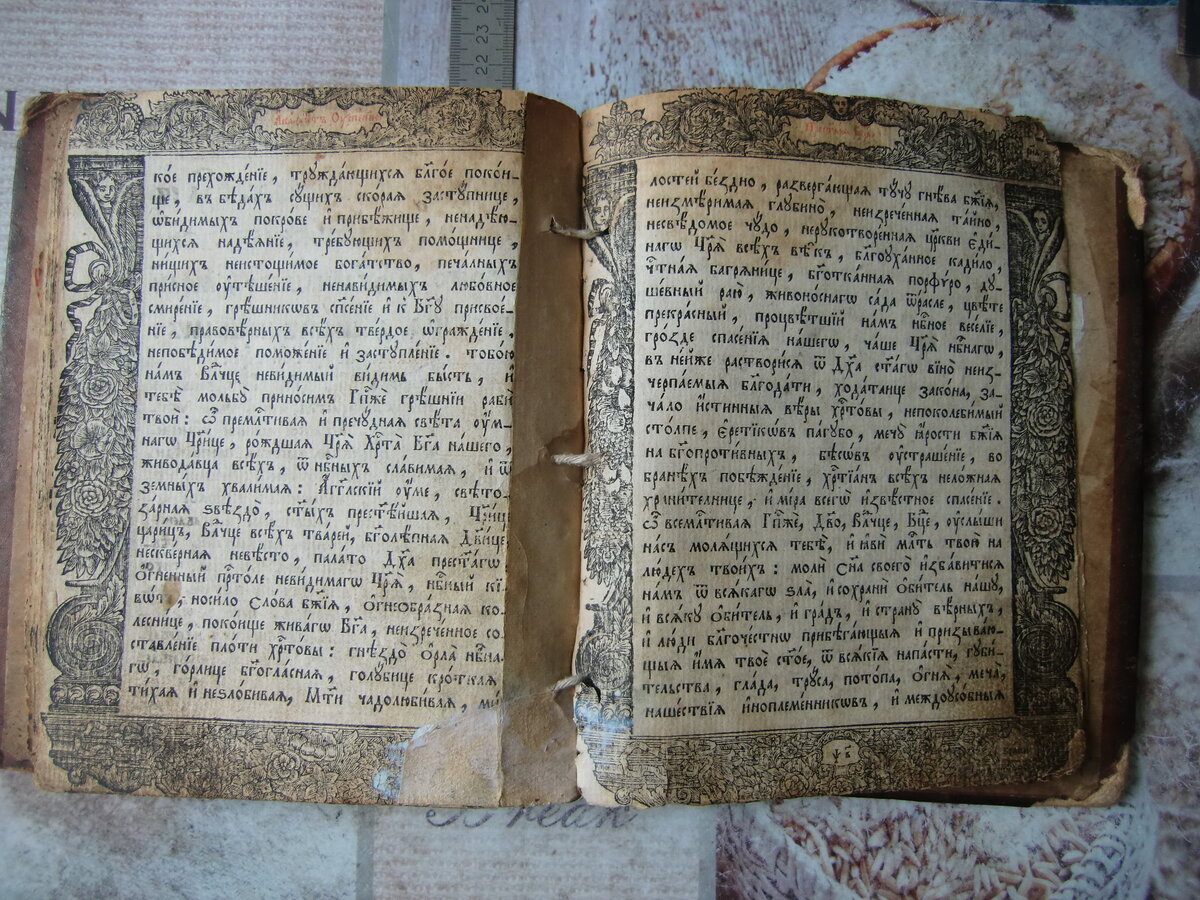 22 23 24
Акаѳистъ Оуспенїю
кое прехожде́нїе, трꙋжда́ющихся бл҃го́е поко́и-
ще, въ бѣда́хъ сꙋ́щихъ ско́рая застꙋ́пнице,
ѡби́димыхъ покро́ве и҆ прибѣ́жище, ненадѣ́ю-
щихся надѣ́янїе, тре́бꙋющихъ помо́щнице,
ни́щихъ неистощи́мое бога́тство, печа́лныхъ
при́сное оу҆тѣше́нїе, ненави́димыхъ любо́вное
смире́нїе, грѣ́шникѡвъ сп҃се́нїе и҆ к̾ Бг҃ꙋ присвое́-
нїе, правовѣ́рныхъ всѣ́хъ тве́рдое ѡ҆гражде́нїе,
непобѣди́мое поможе́нїе и҆ застꙋпле́нїе. тобо́ю
на́мъ Влⷣчце неви́димый ви́димь бы́сть, и҆
тебѣ̀ мольбꙋ̀ прино́симъ Гпⷭ҇же грѣ́шнїи раби̑
твои̑: ѽ премлⷭ҇тивая и҆ пречꙋ́дная свѣ́та оу҆́м-
нагѡ Чр҃ице, ро́ждшая Чр҃я̀ Хрⷭ҇та̀ Бг҃а на́шего,
живода́вца всѣ́хъ, ѿ нбⷭ҇ныхъ сла́вимая, и҆ ѿ
земны́хъ хвали́мая: А҆́гг҃лскїй оу҆́ме, свѣто-
за́рная ѕвѣздо̀, ст҃ы́хъ прест҃ѣ́йшая, Чр҃и́ц
цари́цъ, Влⷣчце всѣ́хъ тва́рей, бг҃олѣ́пная Дв҃и́це
нескве́рная невѣ́сто, пала́то Дх҃а прест҃а́гѡ
О҆́гненный прⷭ҇то́ле неви́димагѡ Чр҃я̀, нбⷭ҇ный кі-
во́те, носи́ло Сло́ва бж҃їя, ѻ҆гнеѻбра́зная ко-
лесни́це, поко́ище жива́гѡ Бг҃а, неизрече́нное со-
ставле́нїе пло́ти хрⷭ҇то́вы: гнѣздо̀ ѻ҆рла̀ нбⷭ҇на-
гѡ, го́рлице бг҃огла́сная, голꙋби́це кро́ткая
ти́хая и҆ неѕло́бивая, Мт҃и чадолюби́вая, ми́-
лостей бе́здно, разверга́ющая тꙋ́чꙋ гнѣ́ва бж҃їя,
неизмѣри́мая глꙋбино̀, неизрече́нная та́йно,
несвѣ́домое чꙋ́до, нерꙋкотворе́нная цр҃кви Є҆ди́-
нагѡ Чр҃я̀ всѣ́хъ вѣ̑къ, благоꙋха́нное кади́ло,
чⷭ҇тна́я багряни́це, бг҃отка́нная порфѵ́ро, дꙋ-
ше́вный раю̀, живоно́снагѡ са́да ѿра́сле, цвѣ́те
прекра́сный, процвѣ́тшїй на́мъ нбⷭ҇ное весе́лїе,
гро́зде спасе́нїя на́шегѡ, ча́ше Чр҃я̀ нбⷭ҇нагѡ,
въ не́йже растворѝся ѿ Дх҃а ст҃а́гѡ вїно̀ неиз-
черпа́емыя бл҃года́ти, хода́таице зако́на, за-
ча́ло и҆́стинныя вѣ́ры хрⷭ҇то́вы, непоколеби́мый
сто́лпе, є҆ретїкѡ́въ па́гꙋбо, мечꙋ̀ ꙗ҆́рости бж҃їя
на бг҃опроти́вныхъ, бѣсѡ́въ оу҆страше́нїе, во
бране́хъ побѣжде́нїе, хрⷭ҇тїа́нъ всѣ́хъ нело́жная
храни́телнице, и҆ мі́ра всегѡ̀ и҆звѣ́стное спасе́нїе.
ѽ всемлⷭ҇тивая Гпⷭ҇же́, Дв҃о, Влⷣчце, Бц҃е, оу҆слы́ши
на́съ моля́щихся тебѣ̀, и҆ ꙗ҆вѝ млⷭ҇ть твою̀ на
лю́дехъ твои́хъ: молѝ Сн҃а своего̀ и҆зба́витися
на́мъ ѿ вся́кагѡ ѕла̀, и҆ сохранѝ ѻ҆би́тель на́шꙋ,
и҆ вся́кꙋ ѻ҆би́тель, и҆ гра́дъ, и҆ странꙋ̀ вѣ́рныхъ,
и҆ лю́ди благоче́стнѡ прибѣга́ющыя и҆ призыва́ю-
щыя и҆́мя твоѐ ст҃о́е, ѿ вся́кїя напа́сти, гꙋби́-
тельства, гла́да, трꙋ́са, пото́па, ѻ҆гня̀, меча̀,
наше́ствїя и҆ноплеме́нникѡвъ, и҆ междоꙋсо́бныя
Break